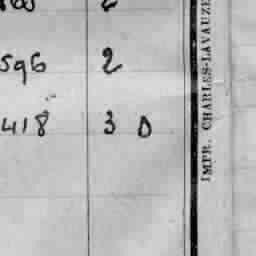 596 2
418 3 D
IMPR. CHARLES-LAVAUZE